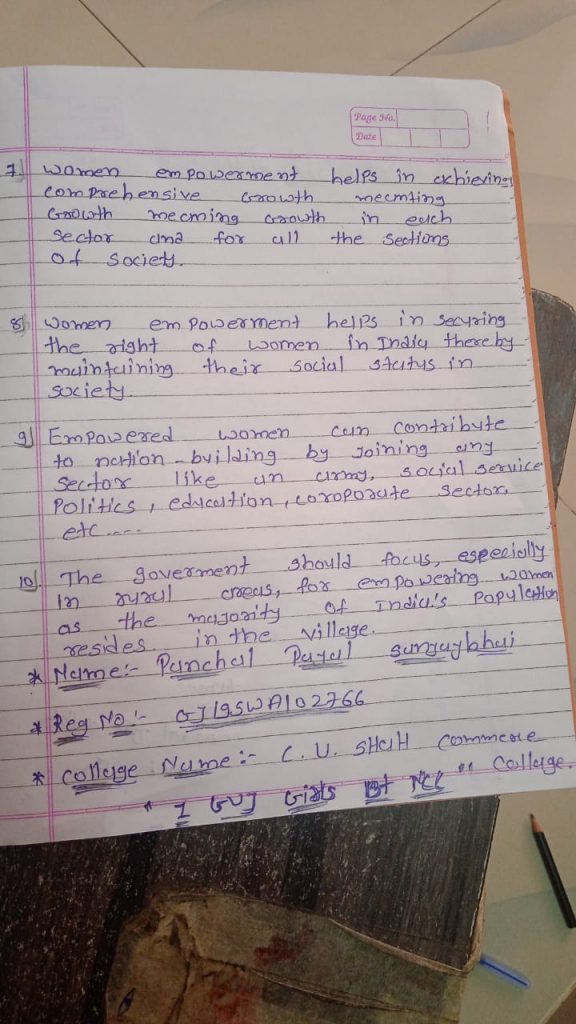 Page No.
Date
7) women empowerment helps in achieving
comprehensive Growth mecmting
Growth mecming Growth in each
sector and for all the sections
of society.
8) women empowerment helps in securing
the right of women in India thereby
maintaining their social status in
society.
9) Empowered women can contribute
to nation-building by joining any
sector like an army, social service
Politics, education, coroporate sector,
etc....
10) The goverment should focus, especially
In rural areas, for empowering women
as the majority of India's Population
resides in the village.
* Name:- Panchal Payal sanjaybhai
* Reg No:- GJ19SWA102766
* collage Name:- C. U. SHAH commerce
collage.
" 1 GUJ Girls Bt NCC "